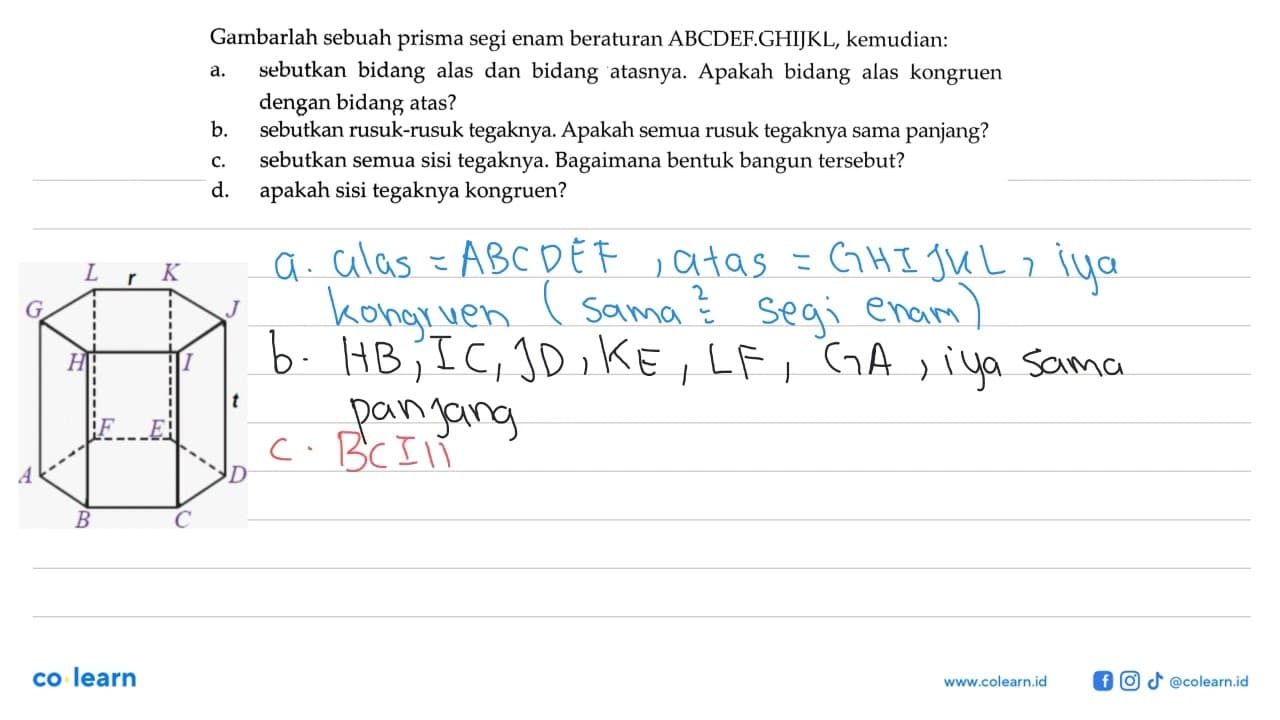 Gambarlah sebuah prisma segi enam beraturan ABCDEF.GHIJKL, kemudian:
a. sebutkan bidang alas dan bidang atasnya. Apakah bidang alas kongruen
dengan bidang atas?
b. sebutkan rusuk-rusuk tegaknya. Apakah semua rusuk tegaknya sama panjang?
c. sebutkan semua sisi tegaknya. Bagaimana bentuk bangun tersebut?
d. apakah sisi tegaknya kongruen?
a. alas = ABCDEF, atas = GHIJKL, iya
kongruen (sama2 = segi enam)
b. HB, IC, JD, KE, LF, GA, iya sama
panjang
c. BCI
L r K
G J
H I
t
F E
A D
B C
co learn
www.colearn.id
@colearn.id